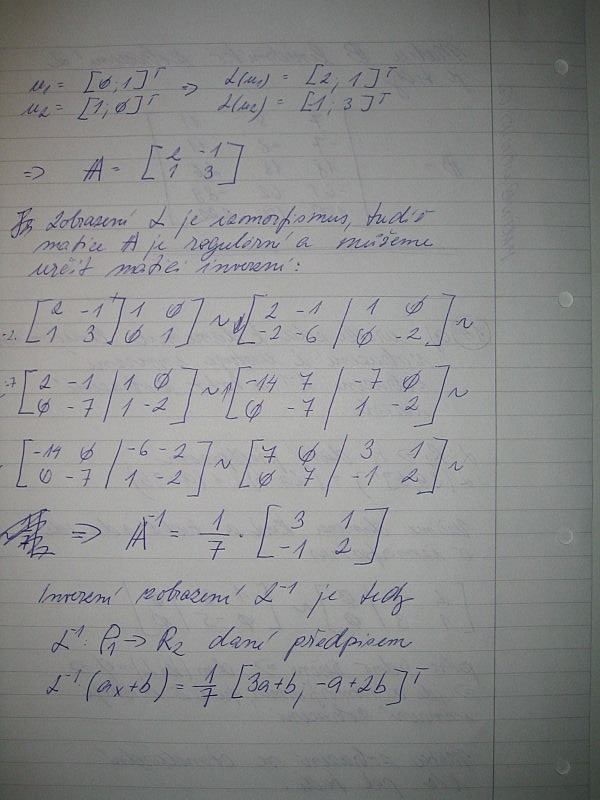 u₁ = [0, 1]ᵀ => L(u₁) = [2, 1]ᵀ
u₂ = [1, 0]ᵀ L(u₂) = [1, 3]ᵀ
=> A = [2 -1
1 3]
Zobrazení L je izomorfismus, tudíž
matice A je regulární a můžeme
určit matici inverzní:
[2 -1 | 1 0] ~ [2 -1 | 1 0] ~
-2. [1 3 | 0 1] [-2 -6 | 0 -2]
-7 [2 -1 | 1 0] ~ [-14 7 | -7 0] ~
[0 -7 | 1 -2] [0 -7 | 1 -2]
[-14 0 | -6 -2] ~ [7 0 | 3 1] ~
[0 -7 | 1 -2] [0 7 | -1 2]
=> A⁻¹ = 1/7 · [3 1
-1 2]
Inverzní zobrazení L⁻¹ je tedy
L⁻¹: P₁ → R₂ dané předpisem
L⁻¹(ax+b) = 1/7 [3a+b, -a+2b]ᵀ